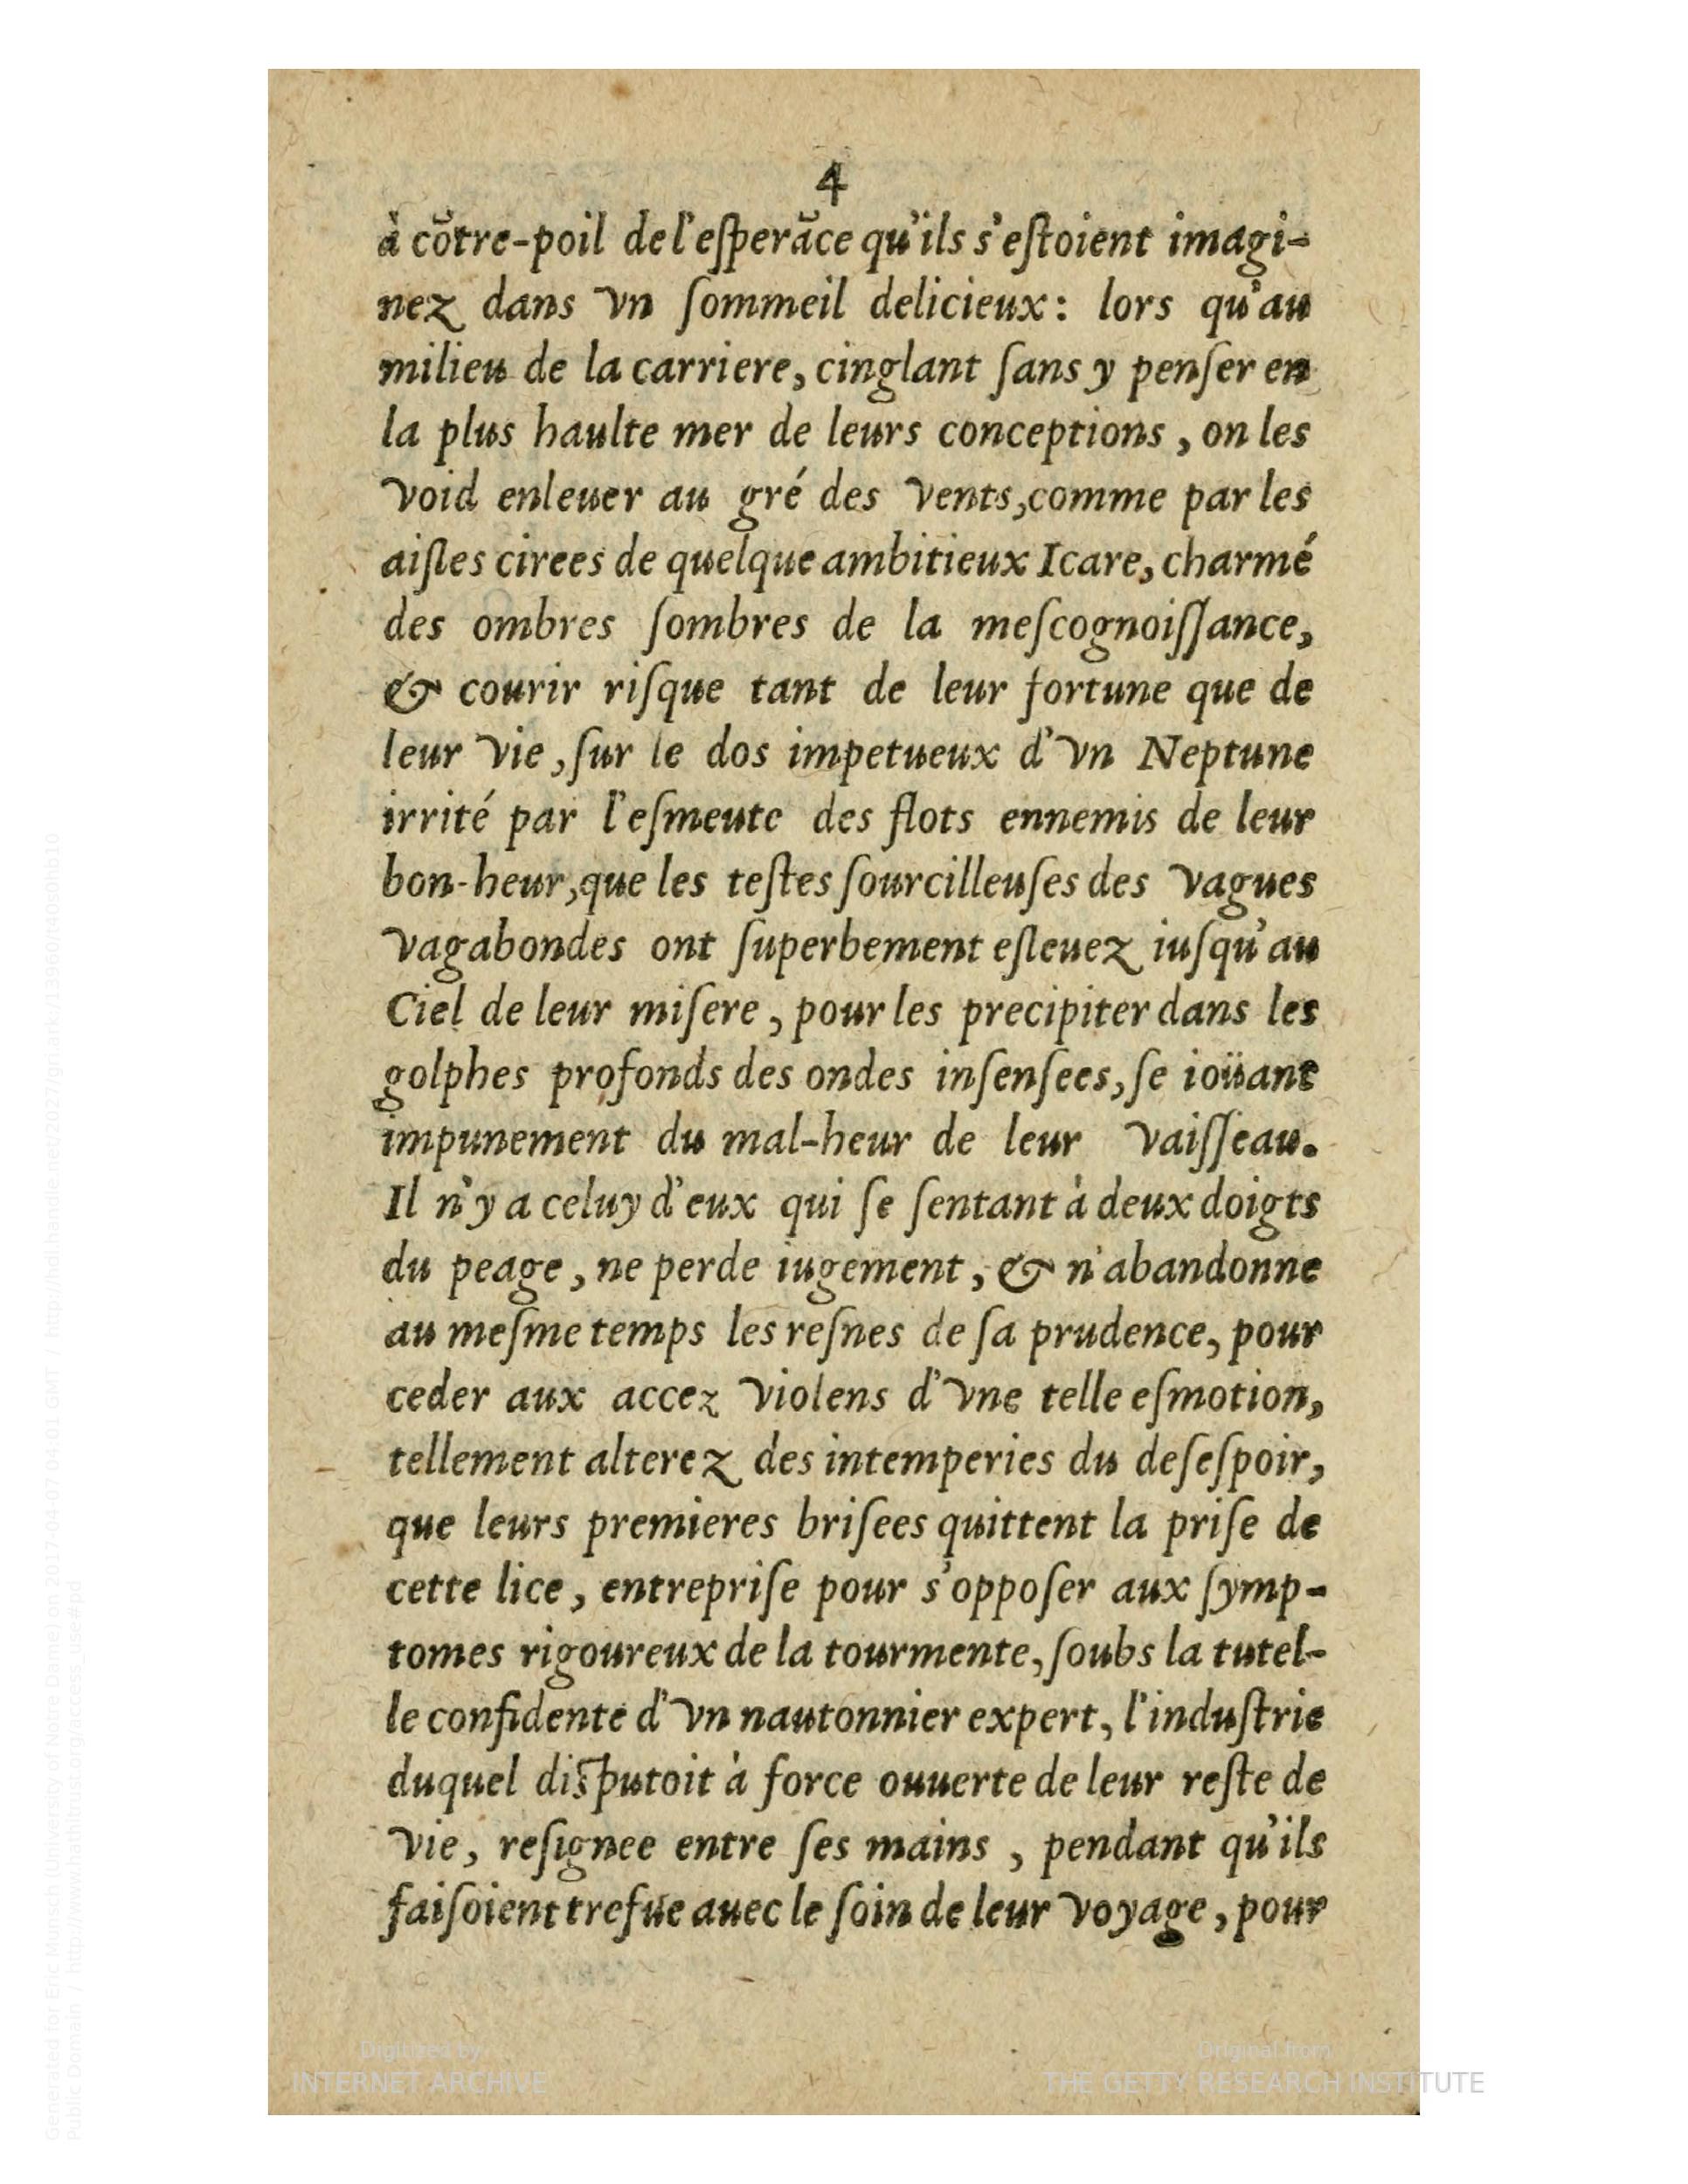 4
à cõtre-poil de l'eſperãce qu'ils s'eſtoient imagi-
nez dans vn ſommeil delicieux: lors qu'au
milieu de la carriere, cinglant ſans y penſer en
la plus haulte mer de leurs conceptions, on les
void enleuer au gré des vents, comme par les
aiſles cirees de quelque ambitieux Icare, charmé
des ombres ſombres de la meſcognoiſſance,
& courir riſque tant de leur fortune que de
leur vie, ſur le dos impetueux d'vn Neptune
irrité par l'eſmeute des flots ennemis de leur
bon-heur, que les teſtes ſourcilleuſes des vagues
vagabondes ont ſuperbement eſleuez iuſqu'au
Ciel de leur miſere, pour les precipiter dans les
golphes profonds des ondes inſenſees, ſe ioüant
impunement du mal-heur de leur vaiſſeau.
Il n'y a celuy d'eux qui ſe ſentant à deux doigts
du peage, ne perde iugement, & n'abandonne
au meſme temps les reſnes de ſa prudence, pour
ceder aux accez violens d'vne telle eſmotion,
tellement alterez des intemperies du deſeſpoir,
que leurs premieres briſees quittent la priſe de
cette lice, entrepriſe pour s'oppoſer aux ſymp-
tomes rigoureux de la tourmente, ſoubs la tutel-
le confidente d'vn nautonnier expert, l'induſtrie
duquel diſputoit à force ouuerte de leur reſte de
vie, reſignee entre ſes mains, pendant qu'ils
faiſoient trefue auec le ſoin de leur voyage, pour
Digitized by
INTERNET ARCHIVE
Original from
THE GETTY RESEARCH INSTITUTE